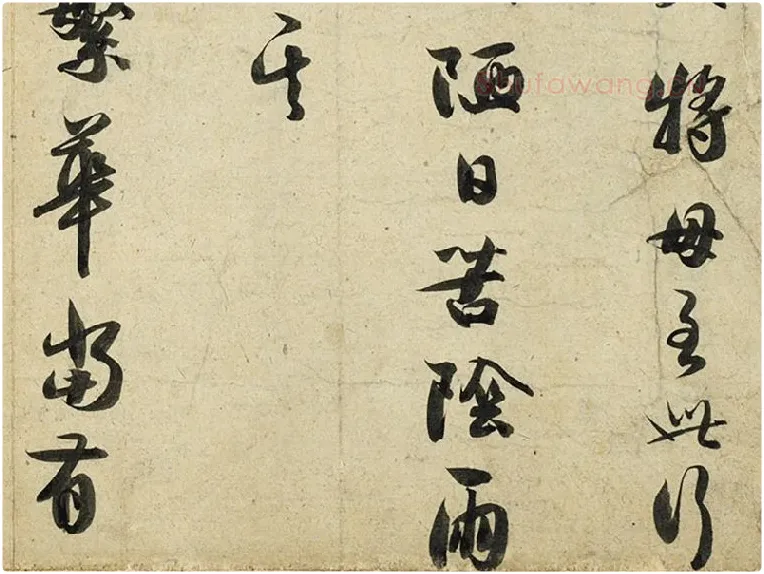 將母至此行
陋日苦陰雨
其
繁華當有
shufawang.cn